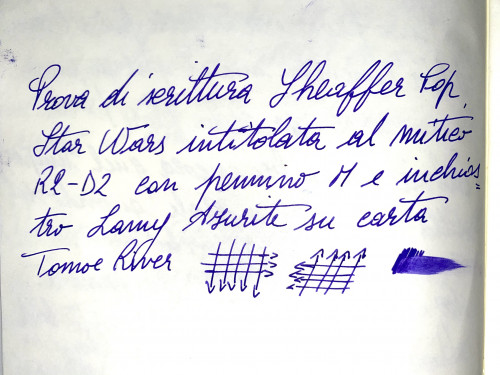 Prova di scrittura Sheaffer Pop
Star Wars intitolata al mitico
R2-D2 con pennino M e inchios=
tro Lamy Azurite su carta
Tomoe River